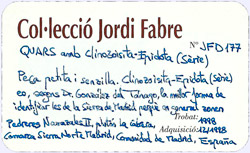 Col·lecció Jordi Fabre
QUARS amb Clinozoisita-Epidota (Sèrie)
Nº JFD177
Peça petita i senzilla. Clinozoisita-Epidota (sèrie)
es, segons Dr. González del Tánago, la millor forma de
identificar les de la sierra de Madrid que en general zonen
Trobat: 1998
Pedrera Navazales II,
la Cabrera
Adquisició: 12/1998
Comarca Sierra Norte Madrid, Comunidad de Madrid, España